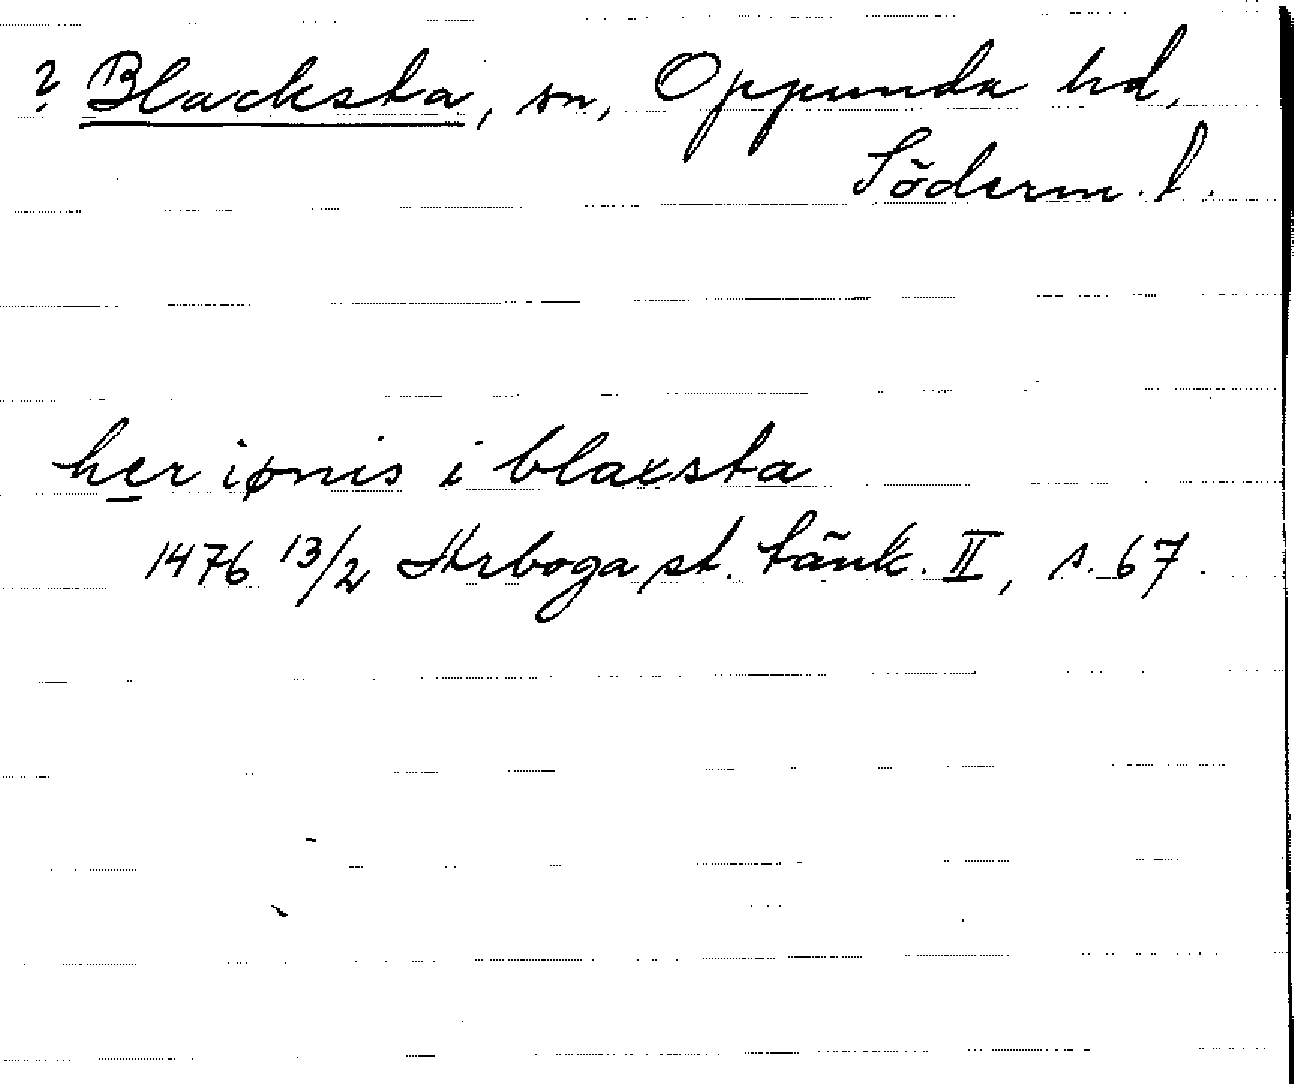 ? Blacksta, sn, Oppunda hd,
Söderm. l.
her iønis i blaxsta
1476 13/2 Arboga st. tänk. II, s. 67.